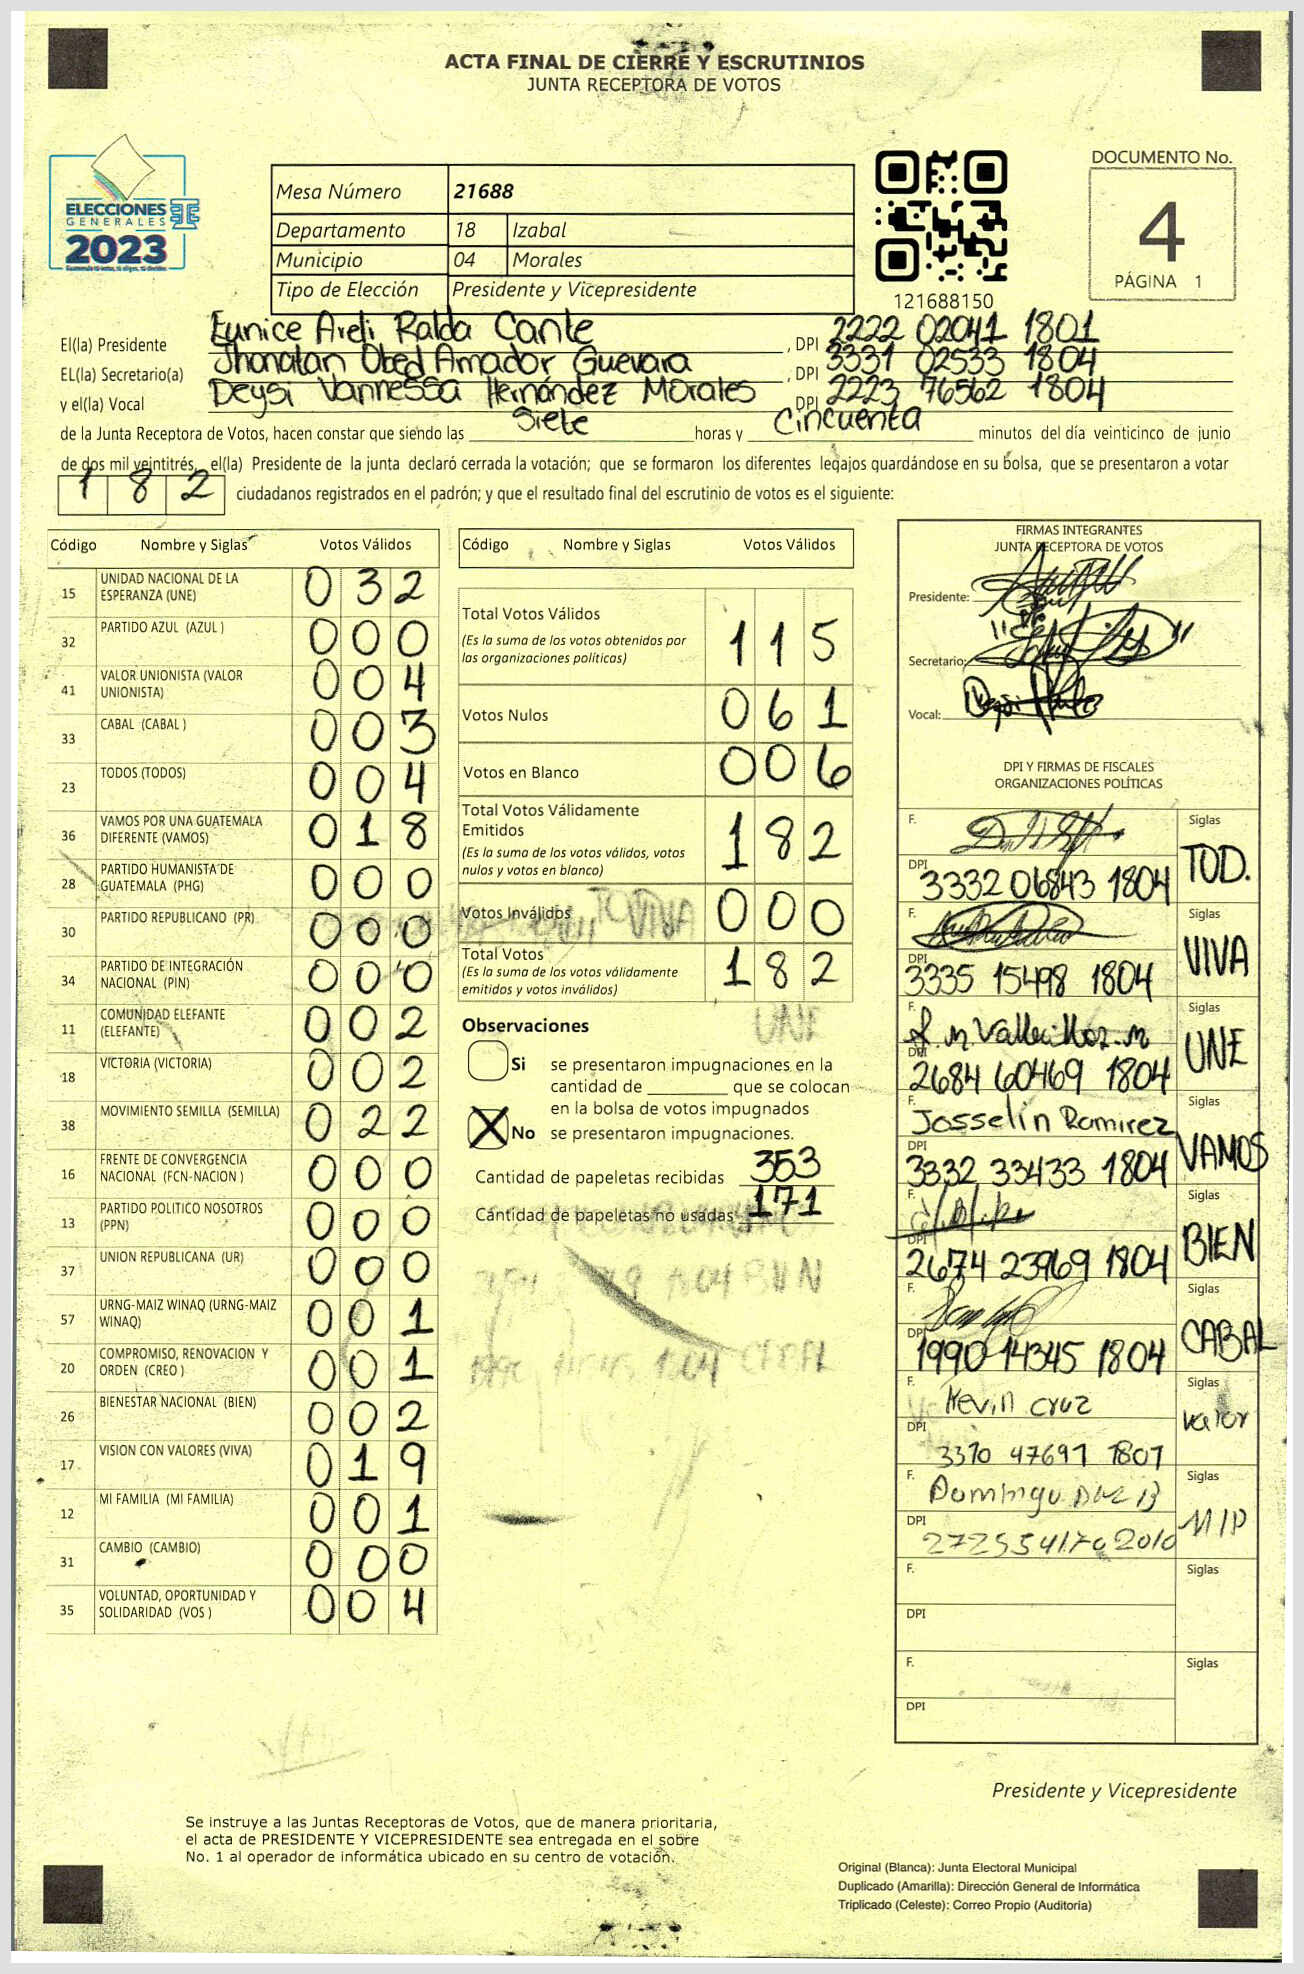 ACTA FINAL DE CIERRE Y ESCRUTINIOS
JUNTA RECEPTORA DE VOTOS
ELECCIONES
GENERALES
2023
Mesa Número 21688
Departamento 18 Izabal
Municipio 04 Morales
Tipo de Elección Presidente y Vicepresidente
121688150
DOCUMENTO No.
4
PÁGINA 1
El(la) Presidente Eunice Areli Ralda Cante , DPI 2222 02041 1801
EL(la) Secretario(a) Jhonatan Obed Amador Guevara , DPI 3331 02533 1804
y el(la) Vocal Deysi Vannessa Hernández Morales , DPI 2223 76562 1804
de la Junta Receptora de Votos, hacen constar que siendo las Siete horas y Cincuenta minutos del día veinticinco de junio
de dos mil veintitrés, el(la) Presidente de la junta declaró cerrada la votación; que se formaron los diferentes legajos guardándose en su bolsa, que se presentaron a votar
182 ciudadanos registrados en el padrón; y que el resultado final del escrutinio de votos es el siguiente:
Código Nombre y Siglas Votos Válidos
15 UNIDAD NACIONAL DE LA ESPERANZA (UNE) 032
32 PARTIDO AZUL (AZUL ) 000
41 VALOR UNIONISTA (VALOR UNIONISTA) 004
33 CABAL (CABAL ) 003
23 TODOS (TODOS) 004
36 VAMOS POR UNA GUATEMALA DIFERENTE (VAMOS) 018
28 PARTIDO HUMANISTA DE GUATEMALA (PHG) 000
30 PARTIDO REPUBLICANO (PR) 000
34 PARTIDO DE INTEGRACIÓN NACIONAL (PIN) 000
11 COMUNIDAD ELEFANTE (ELEFANTE) 002
18 VICTORIA (VICTORIA) 002
38 MOVIMIENTO SEMILLA (SEMILLA) 022
16 FRENTE DE CONVERGENCIA NACIONAL (FCN-NACION ) 000
13 PARTIDO POLITICO NOSOTROS (PPN) 000
37 UNION REPUBLICANA (UR) 000
57 URNG-MAIZ WINAQ (URNG-MAIZ WINAQ) 001
20 COMPROMISO, RENOVACION Y ORDEN (CREO ) 001
26 BIENESTAR NACIONAL (BIEN) 002
17 VISION CON VALORES (VIVA) 019
12 MI FAMILIA (MI FAMILIA) 001
31 CAMBIO (CAMBIO) 000
35 VOLUNTAD, OPORTUNIDAD Y SOLIDARIDAD (VOS ) 004
Código Nombre y Siglas Votos Válidos
Total Votos Válidos 115
(Es la suma de los votos obtenidos por
las organizaciones políticas)
Votos Nulos 061
Votos en Blanco 006
Total Votos Válidamente
Emitidos 182
(Es la suma de los votos válidos, votos
nulos y votos en blanco)
Votos Inválidos 000
Total Votos 182
(Es la suma de los votos válidamente
emitidos y votos inválidos)
Observaciones
Si se presentaron impugnaciones en la
cantidad de ________ que se colocan
en la bolsa de votos impugnados
X No se presentaron impugnaciones.
Cantidad de papeletas recibidas 353
Cantidad de papeletas no usadas 171
FIRMAS INTEGRANTES
JUNTA RECEPTORA DE VOTOS
Presidente:
Secretario:
Vocal:
DPI Y FIRMAS DE FISCALES
ORGANIZACIONES POLÍTICAS
F. Siglas
DPI 3332 06843 1804 TOD.
F. Siglas
DPI 3335 15498 1804 VIVA
F. Siglas
DPI 2684 60469 1804 UNE
F. Josselin Ramirez Siglas
DPI 3332 33433 1804 VAMOS
F. Siglas
DPI 2674 23969 1804 BIEN
F. Siglas
DPI 1990 14345 1804 CABAL
F. Kevin Cruz Siglas
DPI 3370 47697 1807 Valor
F. Domingo Siglas
DPI
F. Siglas
DPI
F. Siglas
DPI
Presidente y Vicepresidente
Se instruye a las Juntas Receptoras de Votos, que de manera prioritaria,
el acta de PRESIDENTE Y VICEPRESIDENTE sea entregada en el sobre
No. 1 al operador de informática ubicado en su centro de votación.
Original (Blanca): Junta Electoral Municipal
Duplicado (Amarilla): Dirección General de Informática
Triplicado (Celeste): Correo Propio (Auditoria)